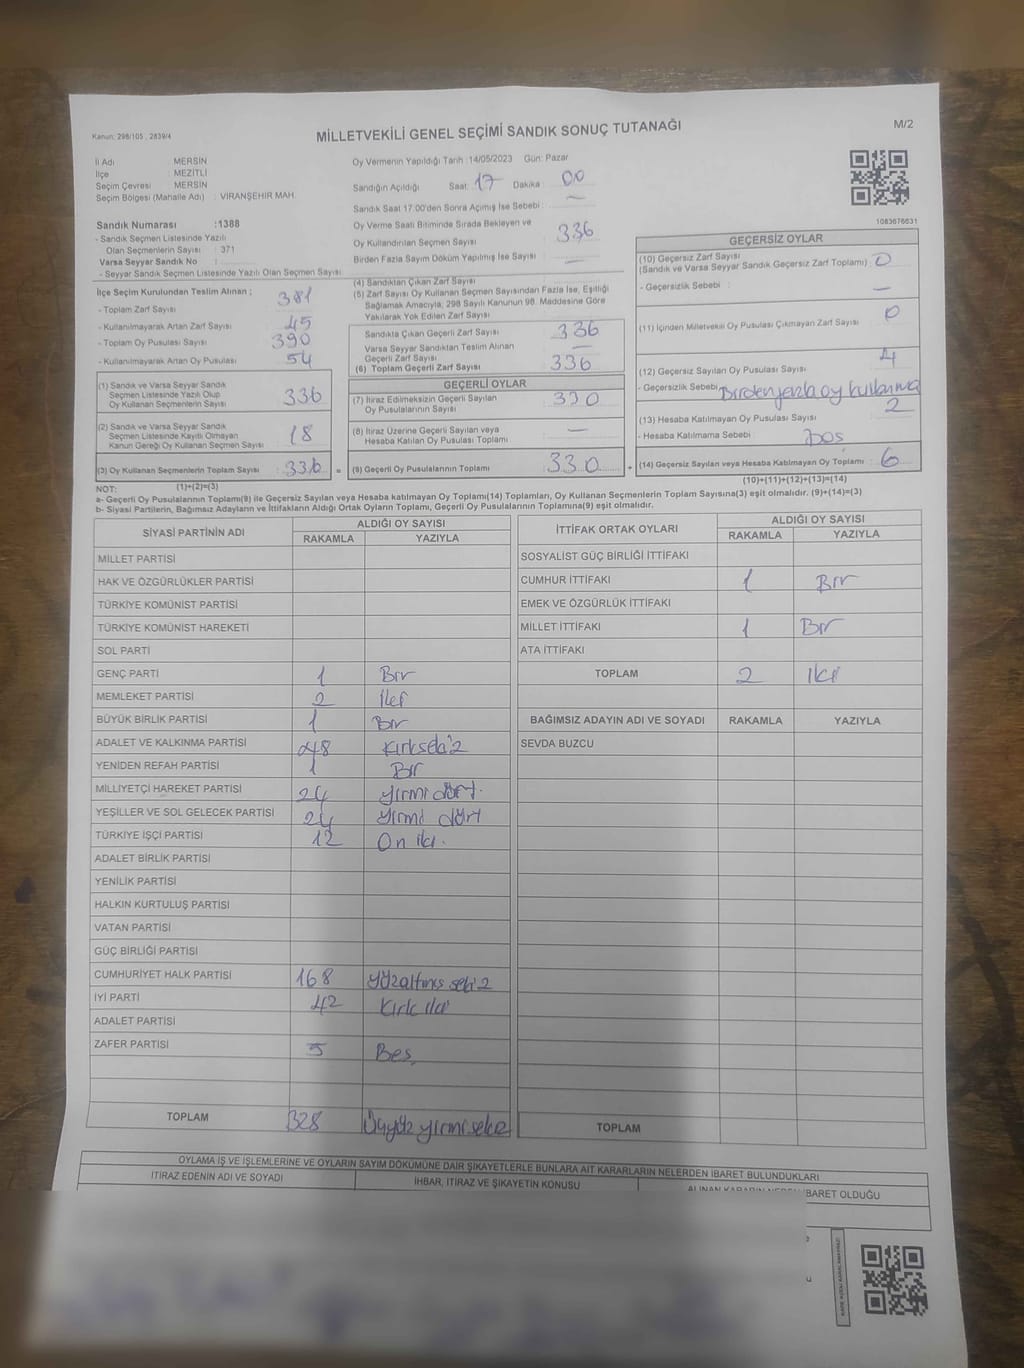 Kanun: 298/105 , 2839/4
MİLLETVEKİLİ GENEL SEÇİMİ SANDIK SONUÇ TUTANAĞI
M/2
İl Adı : MERSİN
İlçe : MEZİTLİ
Seçim Çevresi : MERSİN
Seçim Bölgesi (Mahalle Adı) : VİRANŞEHİR MAH.
Oy Vermenin Yapıldığı Tarih :14/05/2023 Gün: Pazar
Sandığın Açıldığı Saat: 17 Dakika 00
Sandık Saat 17:00'den Sonra Açımış İse Sebebi : —
Sandık Numarası :1388
- Sandık Seçmen Listesinde Yazılı
Olan Seçmenlerin Sayısı : 371
Varsa Seyyar Sandık No :
- Seyyar Sandık Seçmen Listesinde Yazılı Olan Seçmen Sayısı
Oy Verme Saati Bitiminde Sırada Bekleyen ve
Oy Kullandırılan Seçmen Sayısı 336
Birden Fazla Sayım Döküm Yapılmış İse Sayısı : —
1083676631
İlçe Seçim Kurulundan Teslim Alınan ;
- Toplam Zarf Sayısı : 381
- Kullanılmayarak Artan Zarf Sayısı : 45
- Toplam Oy Pusulası Sayısı : 390
- Kullanılmayarak Artan Oy Pusulası : 54
(1) Sandık ve Varsa Seyyar Sandık
Seçmen Listesinde Yazılı Olup
Oy Kullanan Seçmenlerin Sayısı : 336
(2) Sandık ve Varsa Seyyar Sandık
Seçmen Listesinde Kayıtlı Olmayan
Kanun Gereği Oy Kullanan Seçmen Sayısı : 18
(3) Oy Kullanan Seçmenlerin Toplam Sayısı : 336 =
(1)+(2)=(3)
(4) Sandıktan Çıkan Zarf Sayısı :
(5) Zarf Sayısı Oy Kullanan Seçmen Sayısından Fazla İse, Eşitliği
Sağlamak Amacıyla; 298 Sayılı Kanunun 98. Maddesine Göre
Yakılarak Yok Edilen Zarf Sayısı :
Sandıkta Çıkan Geçerli Zarf Sayısı : 336
Varsa Seyyar Sandıktan Teslim Alınan
Geçerli Zarf Sayısı : —
(6) Toplam Geçerli Zarf Sayısı : 336
GEÇERLİ OYLAR
(7) İtiraz Edilmeksizin Geçerli Sayılan
Oy Pusulalarının Sayısı : 330
(8) İtiraz Üzerine Geçerli Sayılan veya
Hesaba Katılan Oy Pusulası Toplamı : —
(9) Geçerli Oy Pusulalarının Toplamı : 330 +
GEÇERSİZ OYLAR
(10) Geçersiz Zarf Sayısı
(Sandık ve Varsa Seyyar Sandık Geçersiz Zarf Toplamı) : 0
- Geçersizlik Sebebi : —
(11) İçinden Milletvekil Oy Pusulası Çıkmayan Zarf Sayısı : 0
(12) Geçersiz Sayılan Oy Pusulası Sayısı : 4
- Geçersizlik Sebebi: Birden fazla oy kullanma
(13) Hesaba Katılmayan Oy Pusulası Sayısı : 2
- Hesaba Katılmama Sebebi : boş
(14) Geçersiz Sayılan veya Hesaba Katılmayan Oy Toplamı : 6
(10)+(11)+(12)+(13)=(14)
NOT:
a- Geçerli Oy Pusulalarının Toplamı(9) ile Geçersiz Sayılan veya Hesaba katılmayan Oy Toplamı(14) Toplamları, Oy Kullanan Seçmenlerin Toplam Sayısına(3) eşit olmalıdır. (9)+(14)=(3)
b- Siyasi Partilerin, Bağımsız Adayların ve İttifakların Aldığı Ortak Oyların Toplamı, Geçerli Oy Pusulalarının Toplamına(9) eşit olmalıdır.
SİYASİ PARTİNİN ADI ALDIĞI OY SAYISI
RAKAMLA YAZIYLA
MİLLET PARTİSİ
HAK VE ÖZGÜRLÜKLER PARTİSİ
TÜRKİYE KOMÜNİST PARTİSİ
TÜRKİYE KOMÜNİST HAREKETİ
SOL PARTİ
GENÇ PARTİ 1 Bir
MEMLEKET PARTİSİ 2 iki
BÜYÜK BİRLİK PARTİSİ 1 Bir
ADALET VE KALKINMA PARTİSİ 48 Kırkseki2
YENİDEN REFAH PARTİSİ 1 Bir
MİLLİYETÇİ HAREKET PARTİSİ 24 yirmi dört.
YEŞİLLER VE SOL GELECEK PARTİSİ 24 yirmi dört
TÜRKİYE İŞÇİ PARTİSİ 12 On iki.
ADALET BİRLİK PARTİSİ
YENİLİK PARTİSİ
HALKIN KURTULUŞ PARTİSİ
VATAN PARTİSİ
GÜÇ BİRLİĞİ PARTİSİ
CUMHURİYET HALK PARTİSİ 168 yüzaltmış seki2
İYİ PARTİ 42 Kırk iki
ADALET PARTİSİ
ZAFER PARTİSİ 5 Beş
TOPLAM 328 Üçyüz yirmisekiz
İTTİFAK ORTAK OYLARI ALDIĞI OY SAYISI
RAKAMLA YAZIYLA
SOSYALİST GÜÇ BİRLİĞİ İTTİFAKI
CUMHUR İTTİFAKI 1 Bir
EMEK VE ÖZGÜRLÜK İTTİFAKI
MİLLET İTTİFAKI 1 Bir
ATA İTTİFAKI
TOPLAM 2 iki
BAĞIMSIZ ADAYIN ADI VE SOYADI RAKAMLA YAZIYLA
SEVDA BUZCU
TOPLAM
OYLAMA İŞ VE İŞLEMLERİNE VE OYLARIN SAYIM DÖKÜMÜNE DAİR ŞİKAYETLERLE BUNLARA AİT KARARLARIN NELERDEN İBARET BULUNDUKLARI
İTİRAZ EDENİN ADI VE SOYADI İHBAR, İTİRAZ VE ŞİKAYETİN KONUSU ALINAN KARARIN NEDEN İBARET OLDUĞU